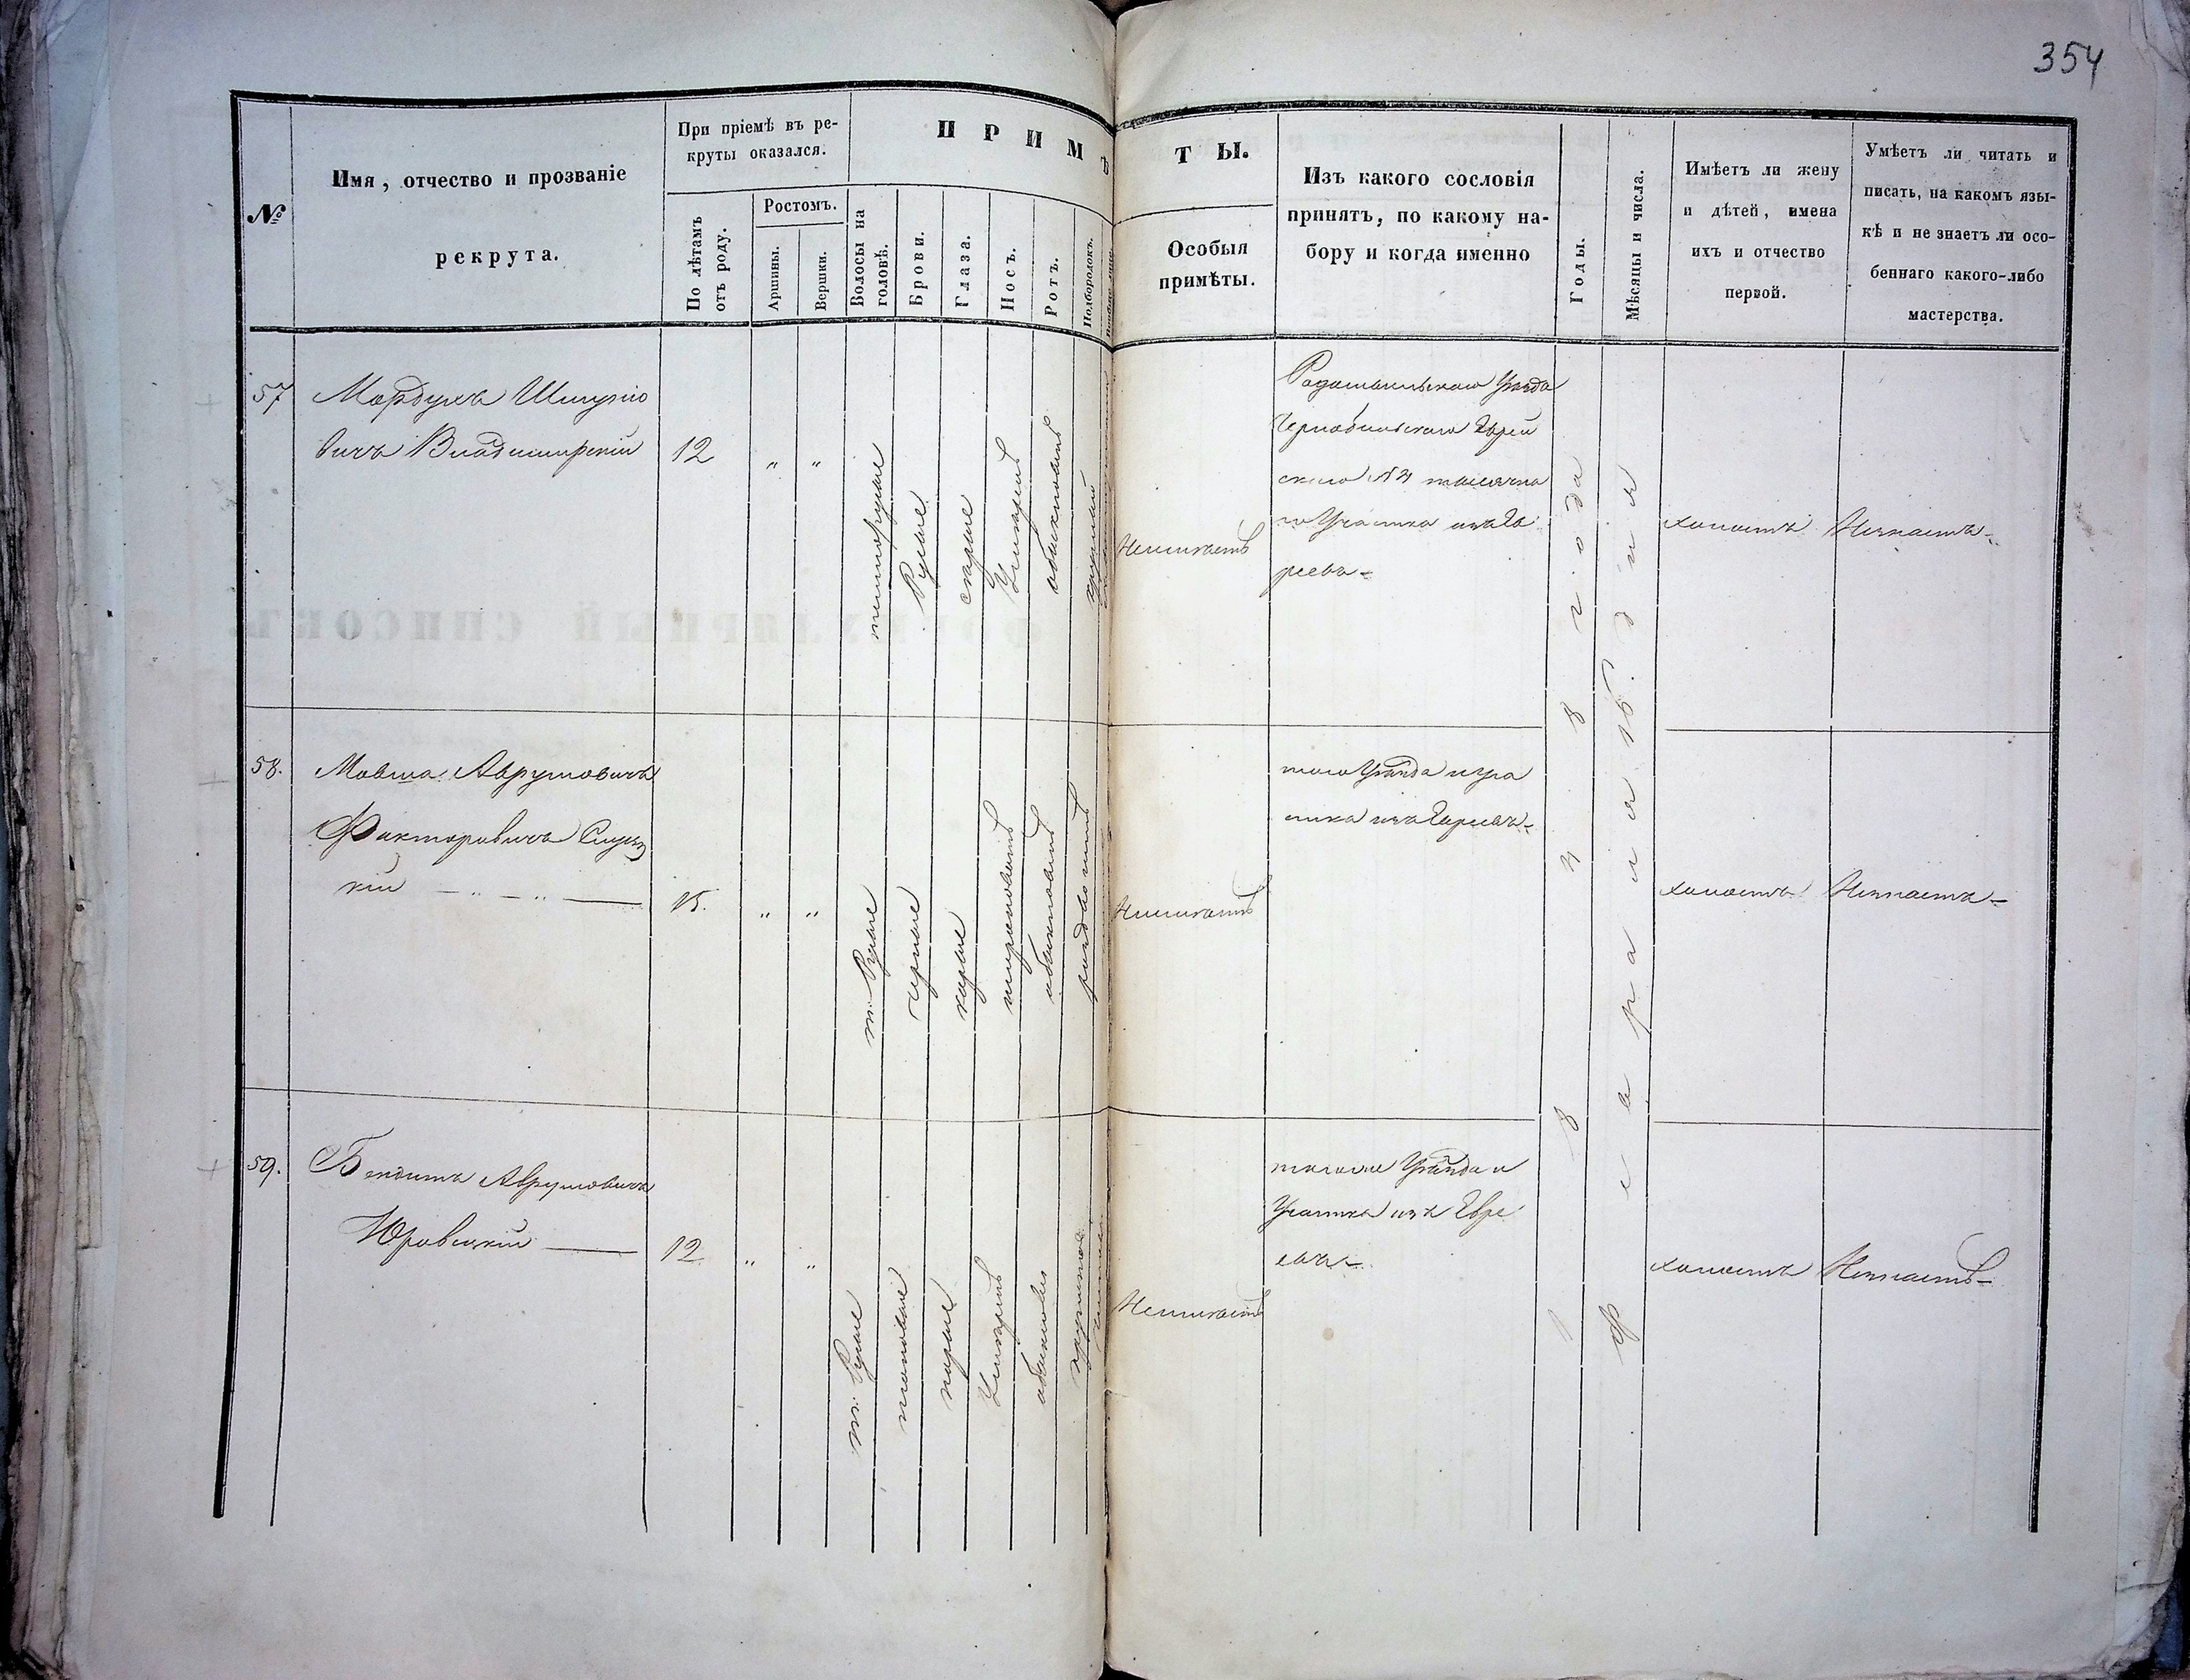 354
№
Имя, отчество и прозваніе
рекрута.
При пріемѣ въ ре-
круты оказался.
По лѣтамъ
отъ роду.
Ростомъ.
Аршины.
Вершки.
ПРИМѢ
ТЫ.
Волосы на
головѣ.
Брови.
Глаза.
Носъ.
Ротъ.
Подбородокъ.
Особыя
примѣты.
Изъ какого сословія
принятъ, по какому на-
бору и когда именно
Годы.
Мѣсяцы и числа.
Имѣетъ ли жену
и дѣтей, имена
ихъ и отчество
первой.
Умѣетъ ли читать и
писать, на какомъ язы-
кѣ и не знаетъ ли осо-
беннаго какого-либо
мастерства.
57
Мордухъ Шмуліо
вичъ Владимирскій
12
" "
темнорусые
Русые
скарые
Умѣрен
обыкновен
круглый
Неимѣетъ
Радомысльскаго Уѣзда
Чернобыльскаго Еврей
скаго № тысячна
го Участка изъ Ев
реевъ
холостъ
Незнаетъ
58.
Мовша Аврумовичъ
Факторовичъ
кій
15.
" "
т: Русые
черные
карые
обыкновен
Неимѣетъ
того Уѣзда и Уча
стка изъ Евреевъ
холостъ
Незнаетъ
59.
Бендитъ Аврумовичъ
Юровицкій
12
" "
т: Русые
карые
Умѣрен
обыкновен
Неимѣетъ
тогоже Уѣзда и
Участка изъ Евре
евъ
холостъ
Незнаетъ
1843 года
февраля 16. дня